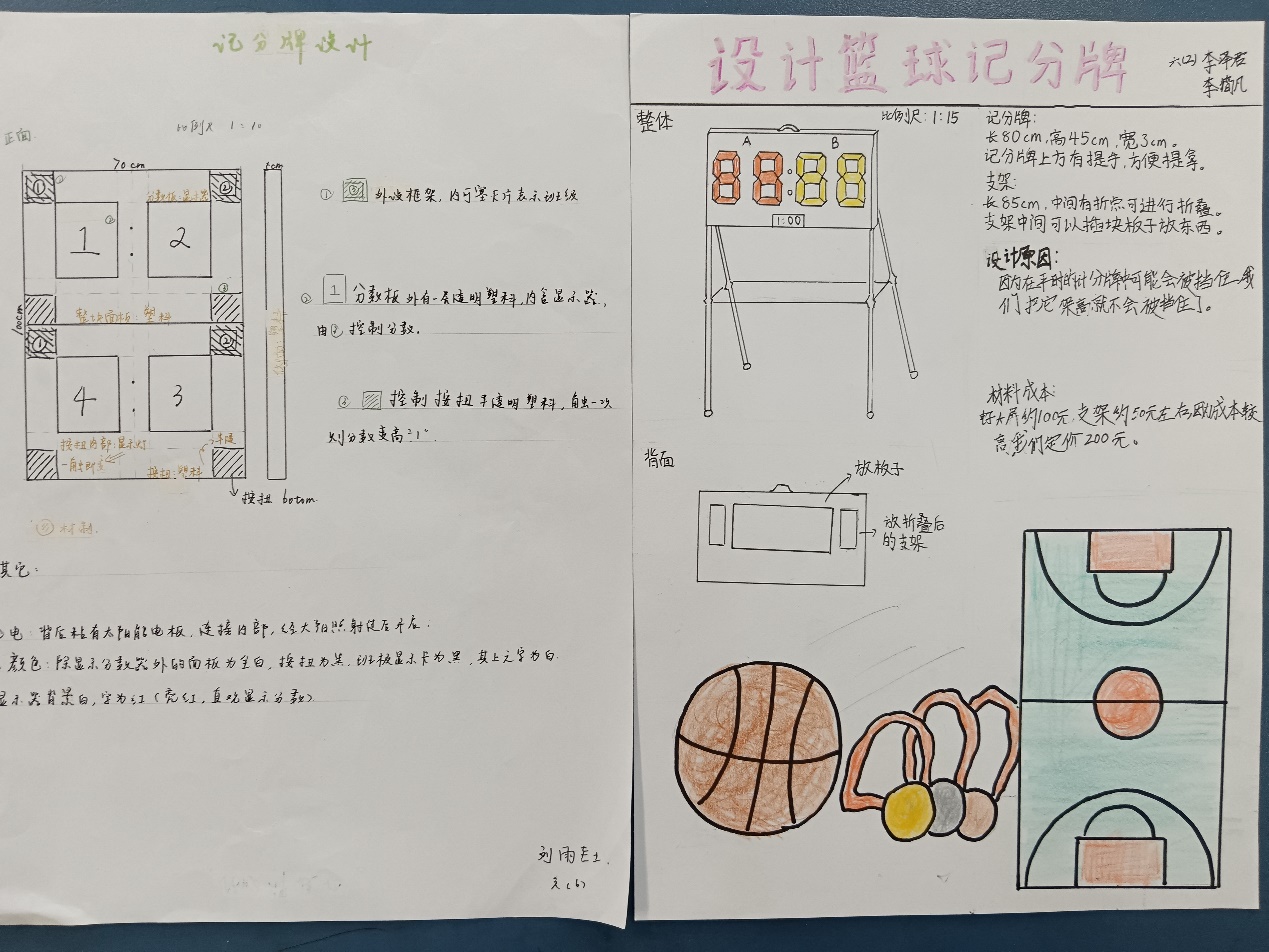 记分牌设计
正面
比例尺 1:10
70cm
1cm
100cm
① ② ②
分数板:显示器
1 : 2
③
整块面板:塑料
① ②
4 : 3
按扭内部:显示灯
一触即亮
按扭:塑料
半透
按扭 botom.
材料.
① ③ 外设框架,内可塞卡片表示班级
② 1 分数板 外有一层透明塑料,内含显示器,
由② 控制分数.
控制按扭半透明塑料,触一次
则分数变高"1".
其它:
电:背后粘有太阳能电板,连接内部,经太阳照射使后开启.
颜色:除显示分数器外的面板为全白,按扭为黑,班级显示卡为黑,其上文字为白.
显示器背景白,字为红(亮红,直观显示分数)
六(6)
设计篮球记分牌
六(2) 李泽君
李 凡
整体
比例尺:1:15
A B
88:88
1:00
记分牌:
长80cm,高45cm,宽3cm。
记分牌上方有提手,方便提拿。
支架:
长85cm,中间有折点可进行折叠。
支架中间可以插块板子放东西。
设计原因:
因为在平时的计分牌中可能会被挡住,我
们把它架高就不会被挡住了。
材料成本:
大屏约100元,支架约50元左右,因成本较
高我们定价200元。
背面
放板子
放折叠后
的支架